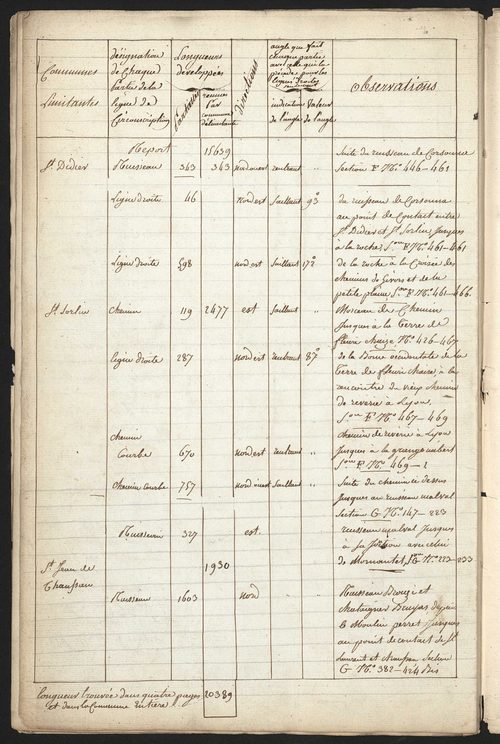 Communes
Limitantes
désignation
de Chaque
Partie de la
ligne de
Circonscription
Longueurs
développées
Partielles
réunies
Par
commune
délimitante
directions
angle que fait
chaque partie
avec celle qui la
précède pour les
lignes droites
seulement
indication
de l'angle
Valeur
de l'angle
Observations
Report 15639
St. Didier Ruisseau 343 343 nord ouest rentrant "
Suite du ruisseau de Corsenne
Section F No. 446-461
Ligne droite 46 Nord est Saillant 93°
du ruisseau de Corsenna
au point de Contact entre
St Didier et St Sorlin, jusques
à la roche, Son F No. 461-461
Ligne droite 598 nord est Saillant 172°
de la roche à la Croisée des
chemins de Givors et de la
petite plaine, Son F No. 461-466
St. Sorlin Chemin 119 2477 est Saillant "
Morceau du Chemin
jusques à la Terre de
fleurie Maize No. 426-467
ligne droite 287 Nord est rentrant 87°
de la Borne occidentale de la
Terre de fleurie Maize, à la
rencontre du vieux chemin
de reverie à Lyon
Son F No. 467-469
chemin
Courbe 670 nord est rentrant "
chemin de reverie à Lyon
jusques à la grange aubert
Son F No. 469-1
Chemin Courbe 757 nord ouest Saillant "
Suite du chemin ci dessus
jusques au ruisseau malval
Section G No. 147-223
Ruisseau 327 est.
ruisseau malval jusques
à sa jonction avec celui
de Mornantet, S G No. 223-233
St. Jean de
Chaussan
1930
Ruisseau 1603 Nord
Ruisseau
Moulin perret, jusques
au point de contact de St
Laurent et Chaussan Section
G No. 382-424 Bis
Longueur trouvée dans quatre pages
et dans la Commune Entière 20389